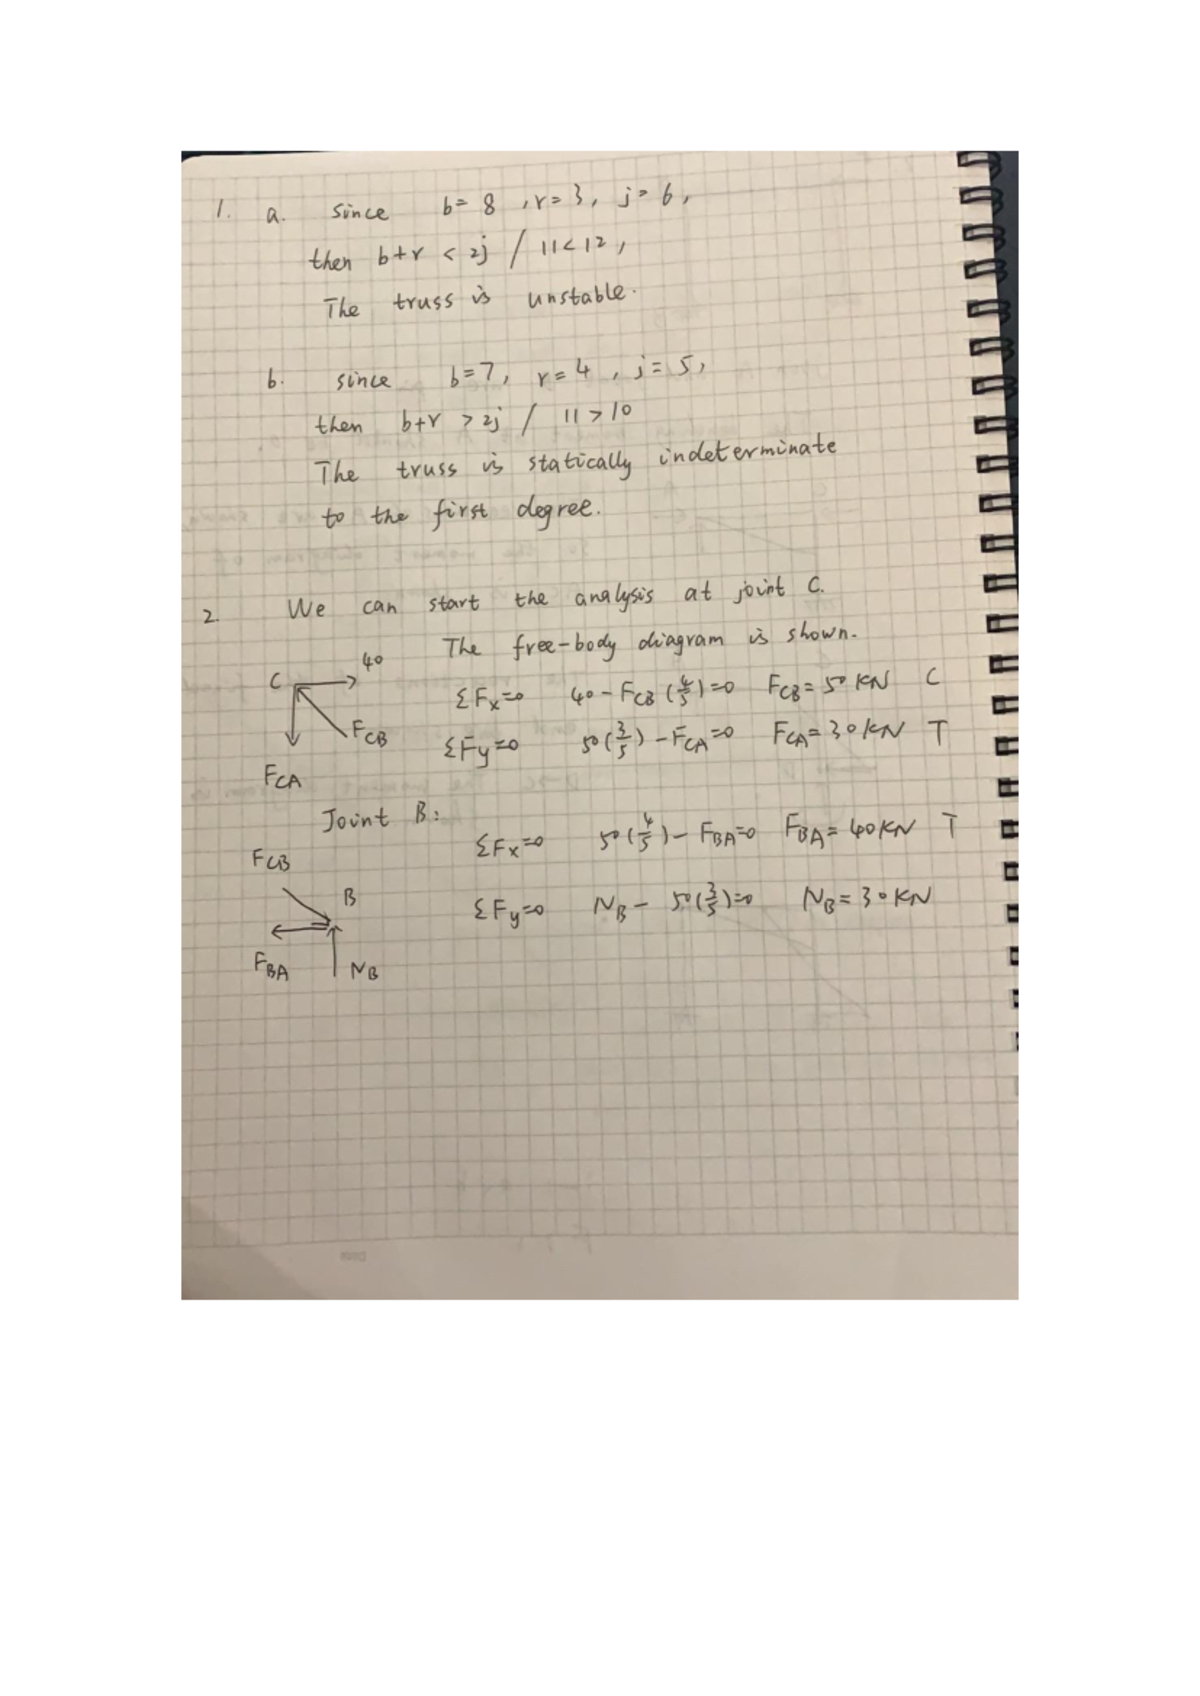 1. a. since b=8, r=3, j=6,
then b+r < 2j / 11<12,
The truss is unstable.
b. since b=7, r=4, j=5,
then b+r >2j / 11>10
The truss is statically indeterminate
to the first degree.
2. We can start the analysis at joint C.
The free-body diagram is shown.
C 40
ΣFx=0 40-FCB(4/5)=0 FCB=50KN C
FCB
ΣFy=0 50(3/5)-FCA=0 FCA=30KN T
FCA
Joint B:
ΣFx=0 50(4/5)-FBA=0 FBA=40KN T
FCB
B
ΣFy=0 NB-50(3/5)=0 NB=30KN
FBA NB